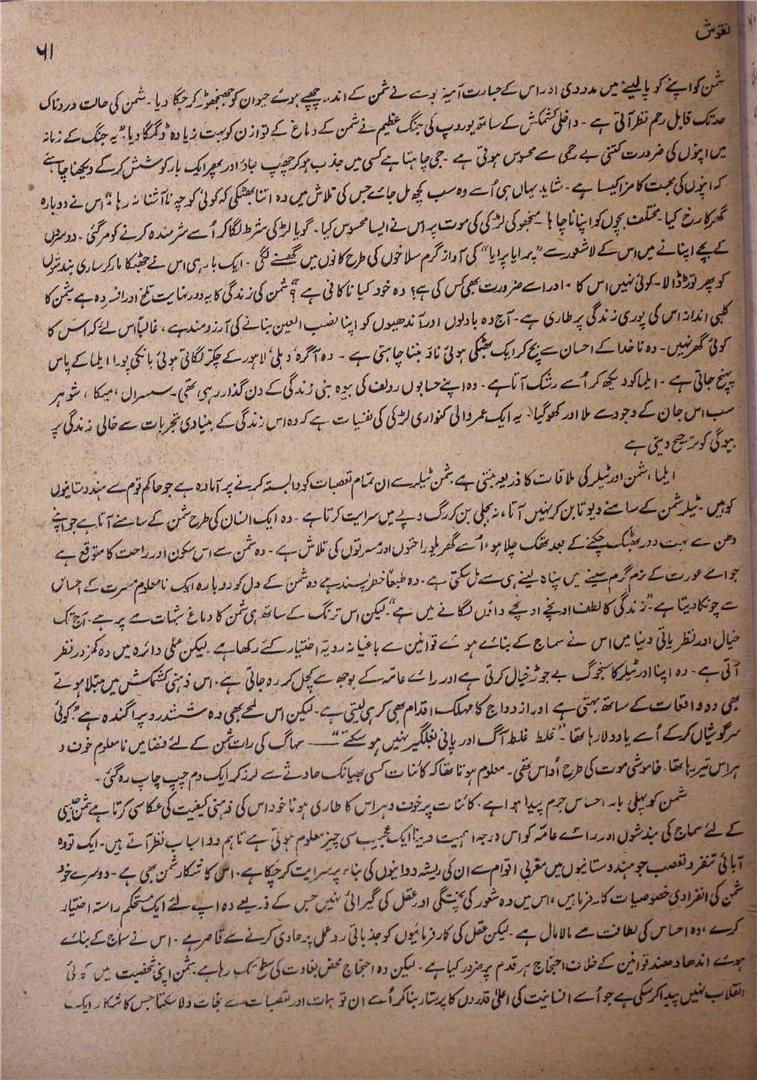 نقوش
۶۱
شمن کو اپنے کو پا لینے میں مدد دی اور اس کے جسارت آمیز بوسے نے شمن کے اندر چھپے ہوئے حیوان کو جھنجھوڑ کر جگا دیا۔ شمن کی حالت دردناک
حد تک قابل رحم نظر آتی ہے۔ داخلی کشمکش کے ساتھ یوروپ کی جنگ عظیم نے شمن کے دماغ کے توازن کو بہت زیادہ ڈگمگا دیا، "یہ جنگ کے زمانہ
میں اپنوں کی ضرورت کتنی بے رحمی سے محسوس ہوتی ہے۔ جی چاہتا ہے کسی میں جذب ہو کر چھپ جاؤ اور پھر ایک بار کوشش کر کے دیکھنا چاہئے
کہ اپنوں کی محبت کا مزا کیسا ہے۔ شاید یہاں ہی اُسے وہ سب کچھ مل جائے جس کی تلاش میں وہ اتنا بھٹکی کہ کوئی کوچہ نا آشنا نہ رہا" اس نے دوبارہ
گھر کا رخ کیا۔ مختلف بچوں کو اپنانا چاہا۔ منجھو کی لڑکی کی موت پر اس نے ایسا محسوس کیا۔ گویا لڑکی شرط لگا کر اُسے شرمندہ کرنے کو مر گئی۔ دوسروں
کے بچے اپنانے میں اس کے لاشعور سے "پرایا پرایا" کی آواز گرم سلاخوں کی طرح کانوں میں گھسنے لگی۔ ایک بار ہی اس نے جھٹکا مار کر ساری بندشوں
کو پھر توڑ ڈالا۔ کوئی نہیں اس کا۔ اور اسے ضرورت بھی کس کی ہے؟ وہ خود کیا ناکافی ہے؟" شمن کی زندگی کا یہ دور نہایت تلخ اور افسردہ ہے شمن کا
کلبی انداز اس کی پوری زندگی پر طاری ہے۔ آج وہ بادلوں اور آندھیوں کو اپنا نصب العین بنانے کی آرزو مند ہے، غالباً اس لئے کہ اس کا
کوئی گھر نہیں۔ وہ ناخدا کے احسان سے بچ کر ایک بھٹکی ہوئی ناؤ بننا چاہتی ہے۔ وہ آگرہ، دہلی، لاہور کے چکر لگاتی ہوئی بانکی پور ایلما کے پاس
پہنچ جاتی ہے۔ ایلما کو دیکھ کر اُسے رشک آتا ہے۔ وہ اپنے حسابوں رولف کی بیوہ بنی زندگی کے دن گذار رہی تھی۔ سسرال، میکا، شوہر
سب اس جان کے وجود سے ملا اور کھو گیا۔ یہ ایک عمر والی کنواری لڑکی کی نفسیات ہے کہ وہ اس زندگی کے بنیادی تجربات سے خالی زندگی پر
بیوگی کو ترجیح دیتی ہے
ایلما، شمن اور ٹیلر کی ملاقات کا ذریعہ بنتی ہے۔ شمن ٹیلر سے ان تمام تعصبات کو وابستہ کرنے پر آمادہ ہے جو حاکم قوم سے ہندوستانیوں
کو ہیں۔ ٹیلر شمن کے سامنے دیوتا بن کر نہیں آتا، نہ بجلی بن کر رگ و پے میں سرایت کرتا ہے۔ وہ ایک انسان کی طرح شمن کے سامنے آتا ہے جو اپنے
وطن سے بہت دور بھٹک چکنے کے بعد تھک چلا ہو، اُسے گھریلو راحتوں اور مسرتوں کی تلاش ہے۔ وہ شمن سے اس سکون اور راحت کا متوقع ہے
جو اسے عورت کے نرم گرم سینے میں پناہ لینے ہی سے مل سکتی ہے۔ وہ طبعاً خطر پسند ہے وہ شمن کے دل کو دوبارہ ایک نامعلوم مسرت کے احساس
سے چونکا دیتا ہے۔ "زندگی کا لطف اونچے اونچے داؤں لگانے میں ہے" لیکن اس ترنگ کے ساتھ ہی شمن کا دماغ شبہات سے پر ہے۔ آج تک
خیال اور نظریاتی دنیا میں اس نے سماج کے بنائے ہوئے قوانین سے باغیانہ رویہ اختیار کئے رکھا ہے۔ لیکن عملی دائرہ میں وہ کمزور نظر
آتی ہے۔ وہ اپنا اور ٹیلر کا سنجوگ بے جوڑ خیال کرتی ہے اور رائے عامہ کے بوجھ سے کچل کر رہ جاتی ہے۔ اس ذہنی کشمکش میں مبتلا ہوتے
بھی وہ واقعات کے ساتھ بہتی ہے اور ازدواج کا مہلک اقدام بھی کر ہی لیتی ہے۔ لیکن اس لمحے بھی وہ ششدر و پراگندہ ہے "کوئی
سرگوشیاں کر کے اُسے یاد دلا رہا تھا۔ "غلط غلط آگ اور پانی بغلگیر نہیں ہو سکتے" —— سہاگ کی رات شمن کے لئے فضا میں نامعلوم خوف و
ہراس تیر رہا تھا۔ خاموشی موت کی طرح اُداس تھی۔ معلوم ہوتا تھا کہ کائنات کسی بھیانک حادثے سے لرز کر ایک دم چپ چاپ رہ گئی۔
شمن کو پہلی بار احساس جرم پیدا ہوا ہے۔ کائنات پر خوف و ہراس کا طاری ہونا خود اس کی ذہنی کیفیت کی عکاسی کرتا ہے شمن جیسی
کے لئے سماج کی بندشوں اور رائے عامہ کو اس درجہ اہمیت دینا ایک عجیب سی چیز معلوم ہوتی ہے تاہم دو اسباب نظر آتے ہیں۔ ایک تو وہ
آبائی تنفر و تعصب جو ہندوستانیوں میں مغربی اقوام سے ان کی ریشہ دوانیوں کی بناء پر سرایت کر چکا ہے۔ اس کا شکار شمن بھی ہے۔ دوسرے خود
شمن کی انفرادی خصوصیات کارفرما ہیں، اس میں وہ شعور کی پختگی اور عقل کی گیرائی نہیں جس کے ذریعے وہ اپنے لئے ایک مستحکم راستہ اختیار
کرے، وہ احساس کی لطافت سے مالا مال ہے۔ لیکن عقل کی کارفرمائیوں کو جذباتی ردعمل پر حاوی کرنے سے قاصر ہے۔ اس نے سماج کے بنائے
ہوئے اندھا دھند قوانین کے خلاف احتجاج ہر قدم پر ضرور کیا ہے۔ لیکن وہ احتجاج محض بغاوت کی سطح تک رہا ہے۔ شمن اپنی شخصیت میں کوئی
انقلاب نہیں پیدا کر سکی ہے جو اُسے انسانیت کی اعلیٰ قدروں کا پرستار بنا کر اُسے ان توہمات اور تعصبات سے نجات دلا سکتا جس کا شکار ایک